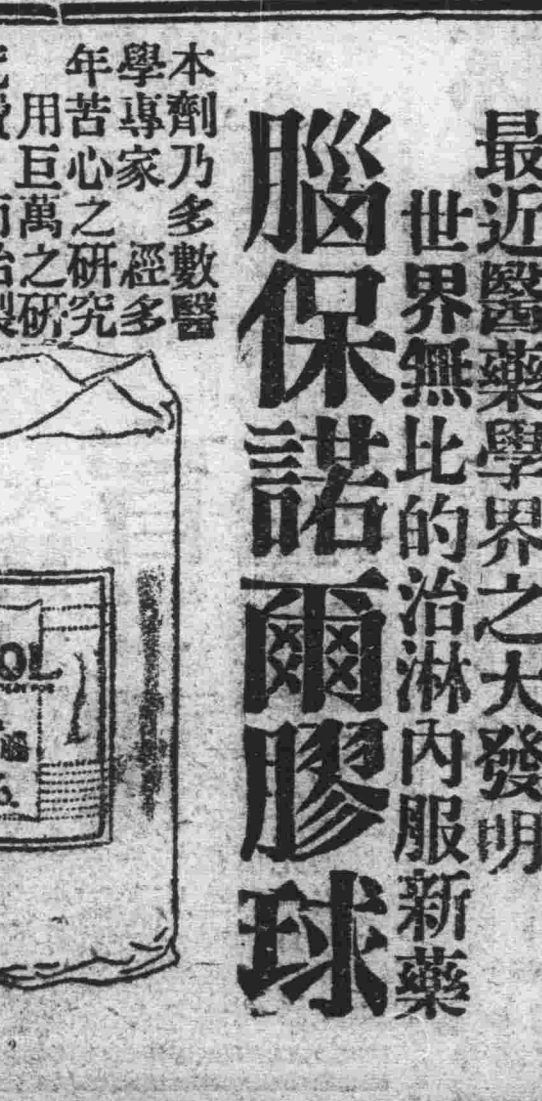 最近醫藥學界之大發明
世界無比的治淋內服新藥
腦保諾爾膠球
本劑乃多數醫
學專家 經多
年苦心之研究
用巨萬之研
OL